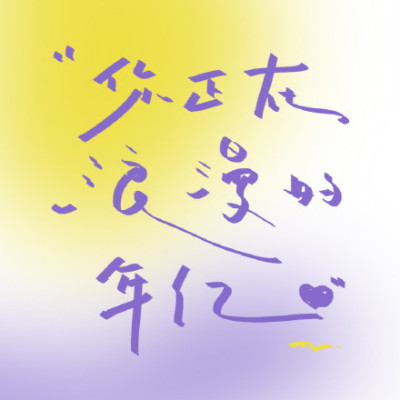 “你正在
浪漫的
年亿”